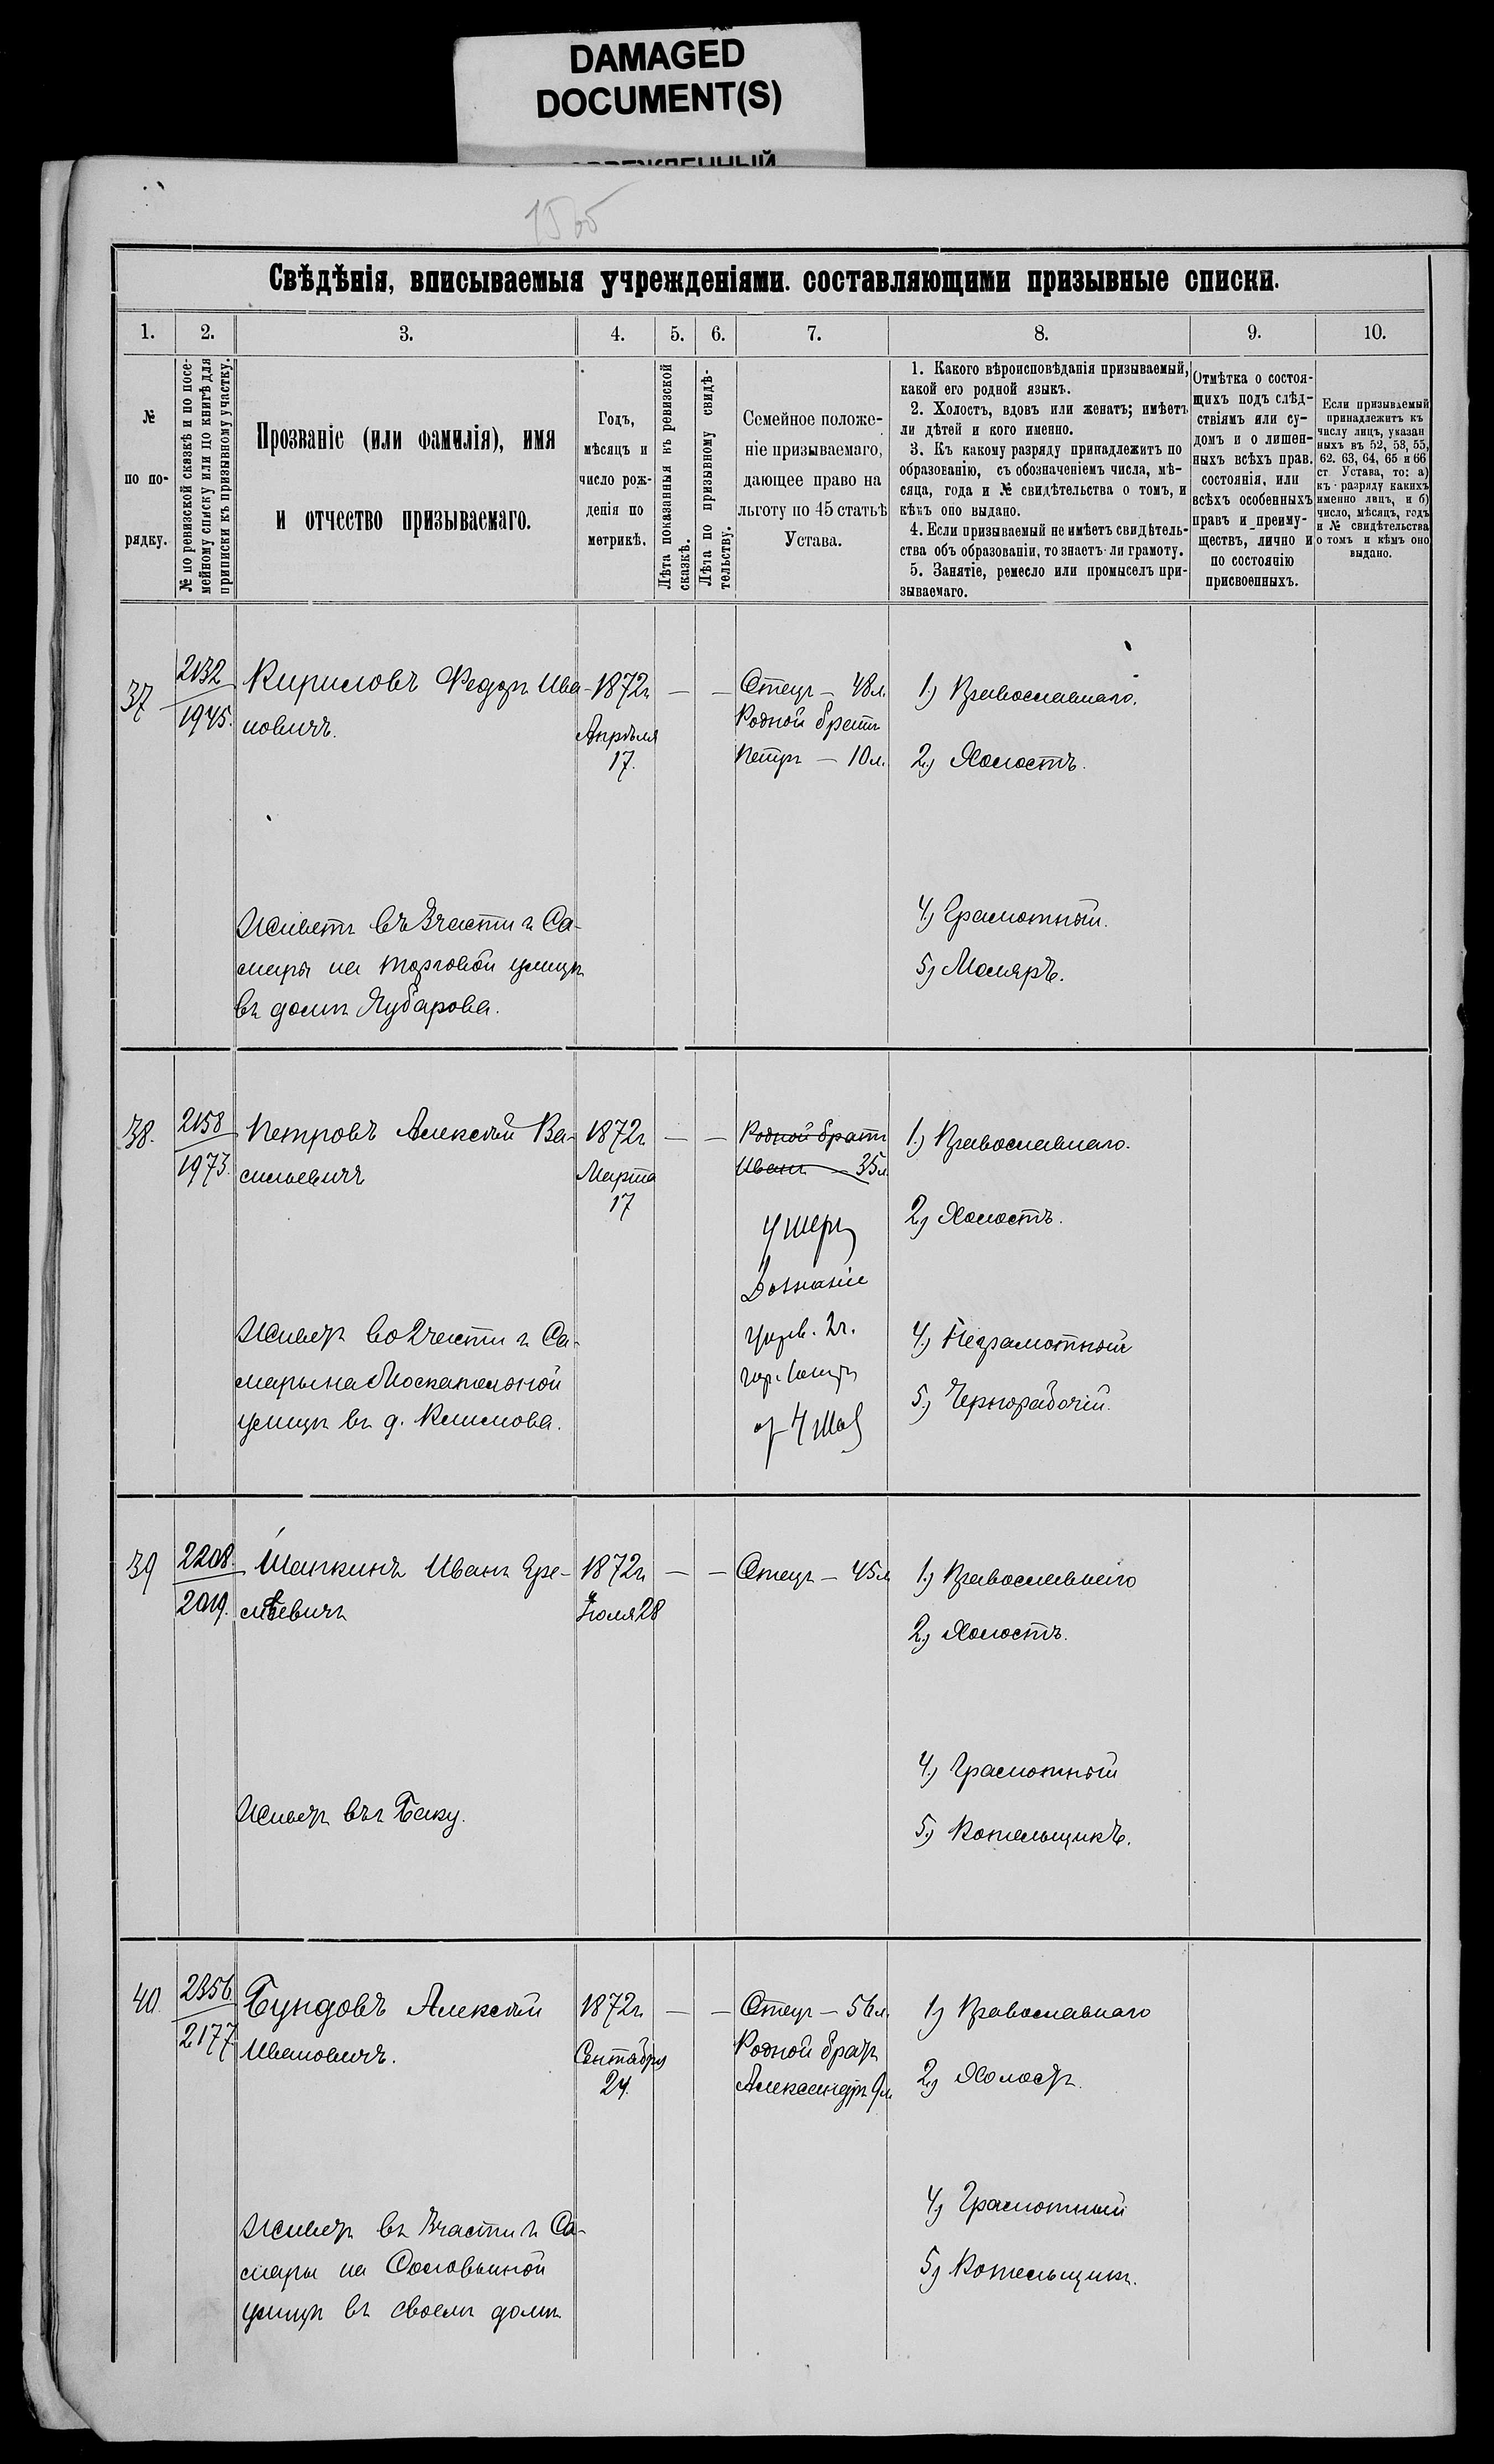 DAMAGED
DOCUMENT(S)
1565
Свѣдѣнія, вписываемыя учрежденіями. составляющими призывные списки.
1.
2.
3.
4.
5.
6.
7.
8.
9.
10.
№
по по-
рядку.
№ по ревизской сказкѣ и по посе-
мейному списку или по книгѣ для
приписки къ призывному участку.
Прозваніе (или фамилія), имя
и отчество призываемаго.
Годъ,
мѣсяцъ и
число рож-
денія по
метрикѣ.
Лѣта показанныя къ ревизской
сказкѣ.
Лѣта по призывному свидѣ-
тельству.
Семейное положе-
ніе призываемаго,
дающее право на
льготу по 45 статьѣ
Устава.
1. Какого вѣроисповѣданія призываемый,
какой его родной языкъ.
2. Холостъ, вдовъ или женатъ; имѣетъ
ли дѣтей и кого именно.
3. Къ какому разряду принадлежитъ по
образованію, съ обозначеніемъ числа, мѣ-
сяца, года и № свидѣтельства о томъ, и
кѣмъ оно выдано.
4. Если призываемый не имѣетъ свидѣтель-
ства объ образованіи, то знаетъ ли грамоту.
5. Занятіе, ремесло или промыселъ при-
зываемаго.
Отмѣтка о состоя-
щихъ подъ слѣд-
ствіямъ или су-
домъ и о лишен-
ныхъ всѣхъ прав.
состоянія, или
всѣхъ особенныхъ
правъ и преиму-
ществъ, лично и
по состоянію
присвоенныхъ.
Если призываемый
принадлежитъ къ
числу лицъ, указан
ныхъ въ 52, 53, 55,
62. 63, 64, 65 и 66
ст Устава, то: а)
къ разряду какихъ
именно лицъ, и б)
число, мѣсяцъ, годъ
и № свидѣтельства
о томъ и кѣмъ оно
выдано.
37
2132
1945.
Кириловъ Федоръ Ива-
новичъ.
1872г
Апрѣля
17.
—
—
Отецъ — 48л.
Родной братъ
Петръ — 10л.
1.) Православнаго.
2.) Холостъ.
4.) Грамотный.
5.) Маляръ.
Живетъ въ 3 части г. Са-
мары на Торговой улицѣ
въ домѣ Зубарова.
38.
2158
1973.
Петровъ Алексѣй Ва-
сильевичъ
1872г
Марта
17
—
—
Родной братъ
Иванъ — 35л
Умеръ
Дознаніе
2ч.
1.) Православнаго.
2.) Холостъ.
4.) Неграмотный
5.) Чернорабочій.
Живетъ во 2 части г. Са-
мары на Москательной
улицѣ въ д. Климова.
39
2208.
2019.
Шапкинъ Иванъ Ере-
мѣевичъ
1872г
Іюля 28
—
—
Отецъ — 45л
1.) Православнаго
2.) Холостъ.
4.) Грамотный
5.) Котельщикъ.
Живетъ въ г. Баку.
40.
2356
2177
Бундовъ Алексѣй
Ивановичъ.
1872г.
Сентября
24.
—
—
Отецъ — 56л.
Родной братъ
Александръ 9л.
1.) Православнаго
2.) Холостъ.
4.) Грамотный
5.) Котельщикъ.
Живетъ въ 3 части г. Са-
мары на Соловьиной
улицѣ въ своемъ домѣ